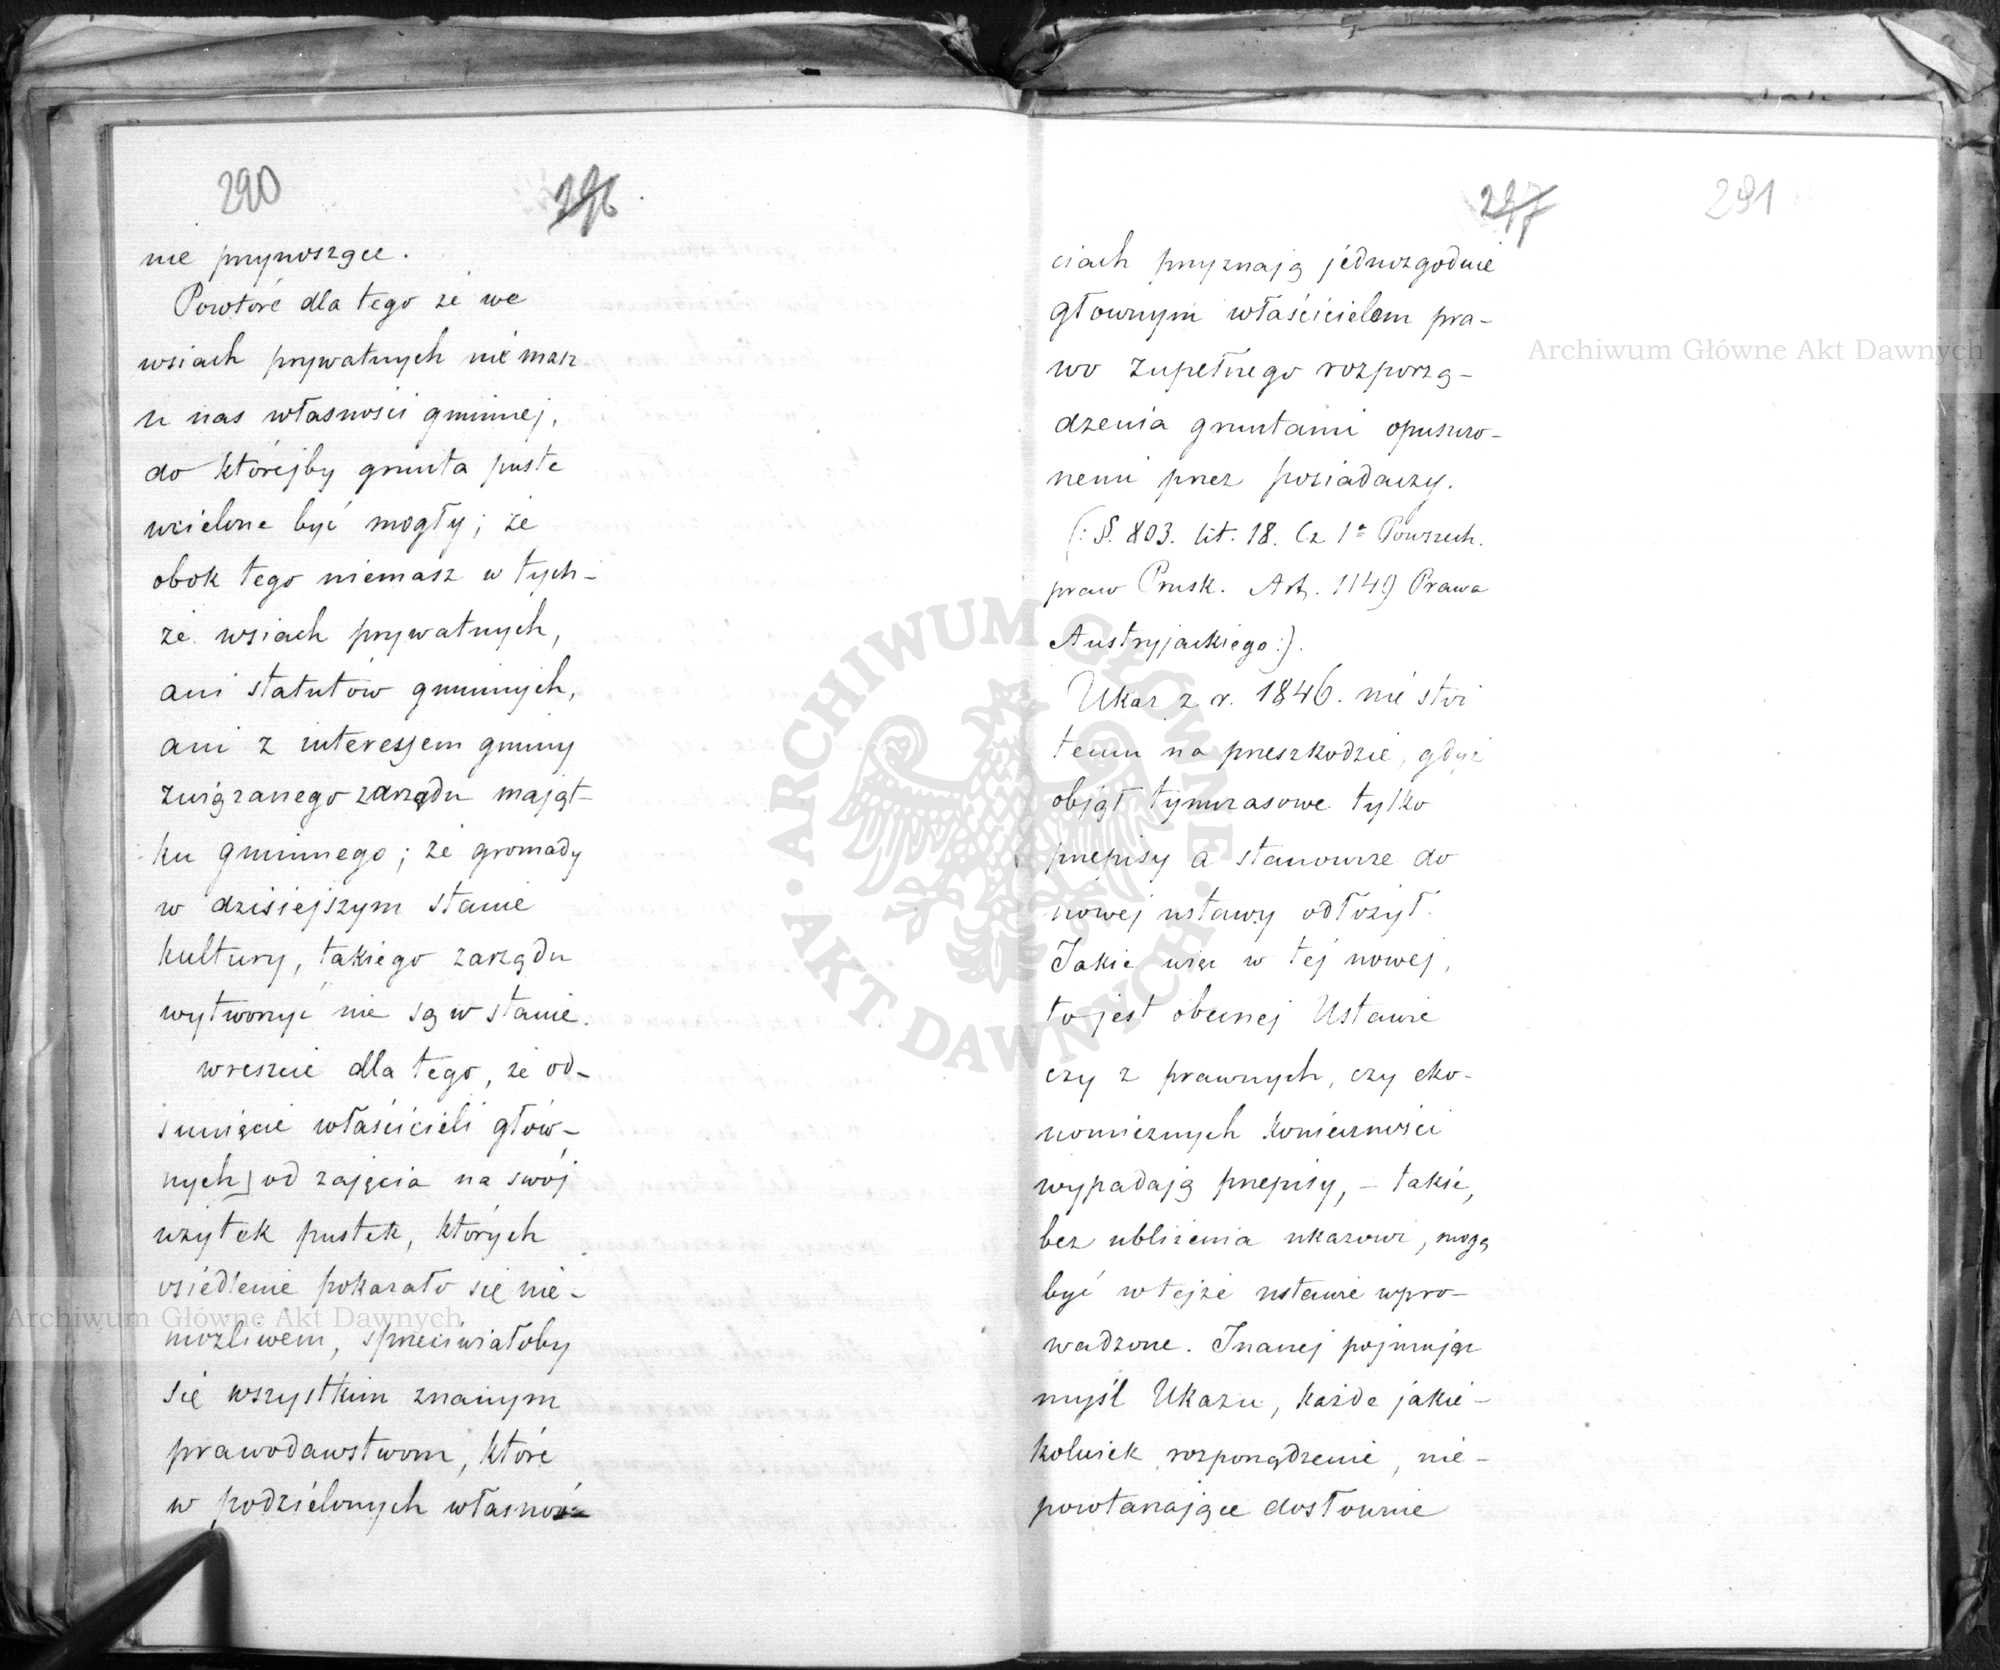 290
246
nie przynoszące.
Powtóre dla tego że we
wsiach prywatnych nie masz
u nas własności gminnej,
do którejby grunta puste
wcielone być mogły; że
obok tego niemasz w tych-
że wsiach prywatnych,
ani statutów gminnych,
ani z interessem gminy
związanego zarządu mająt-
ku gminnego; że gromady
w dzisiejszym stanie
kultury, takiego zarządu
wytworzyć nie są w stanie.
wreszcie dla tego, że od-
sunięcie właścicieli głów-
nych od zajęcia na swój
użytek pustek, których
osiedlenie pokazało się nie-
możliwem, sprzeciwiałoby
się wszystkim znanym
prawodawstwom, które
w podzielonych własnoś-
247
291
ciach przyznają jednozgodnie
głownym właścicielom pra-
wo zupełnego rozporzą-
dzenia gruntami opuszczo-
nemi przez posiadaczy.
(: §. 803. tit. 18. Cz 1a Powszech.
praw Prusk. Art. 1149 Prawa
Austryjackiego:).
Ukaz z r. 1846. nie stoi
temu na przeszkodzie, gdyż
objął tymczasowe tylko
przepisy a stanowcze do
nowej ustawy odłożył.
Jakie więc w tej nowej,
to jest obecnej Ustawie
czy z prawnych, czy eko-
nomicznych konieczności
wypadają przepisy, – takie,
bez ubliżenia ukazowi, mogą
być w tejże ustawie wpro-
wadzone. Inaczej pojmując
myśl Ukazu, każde jakie-
kolwiek rozporządzenie, nie-
powtarzające dosłownie
Archiwum Główne Akt Dawnych
Archiwum Główne Akt Dawnych
ARCHIWUM GŁÓWNE AKT DAWNYCH